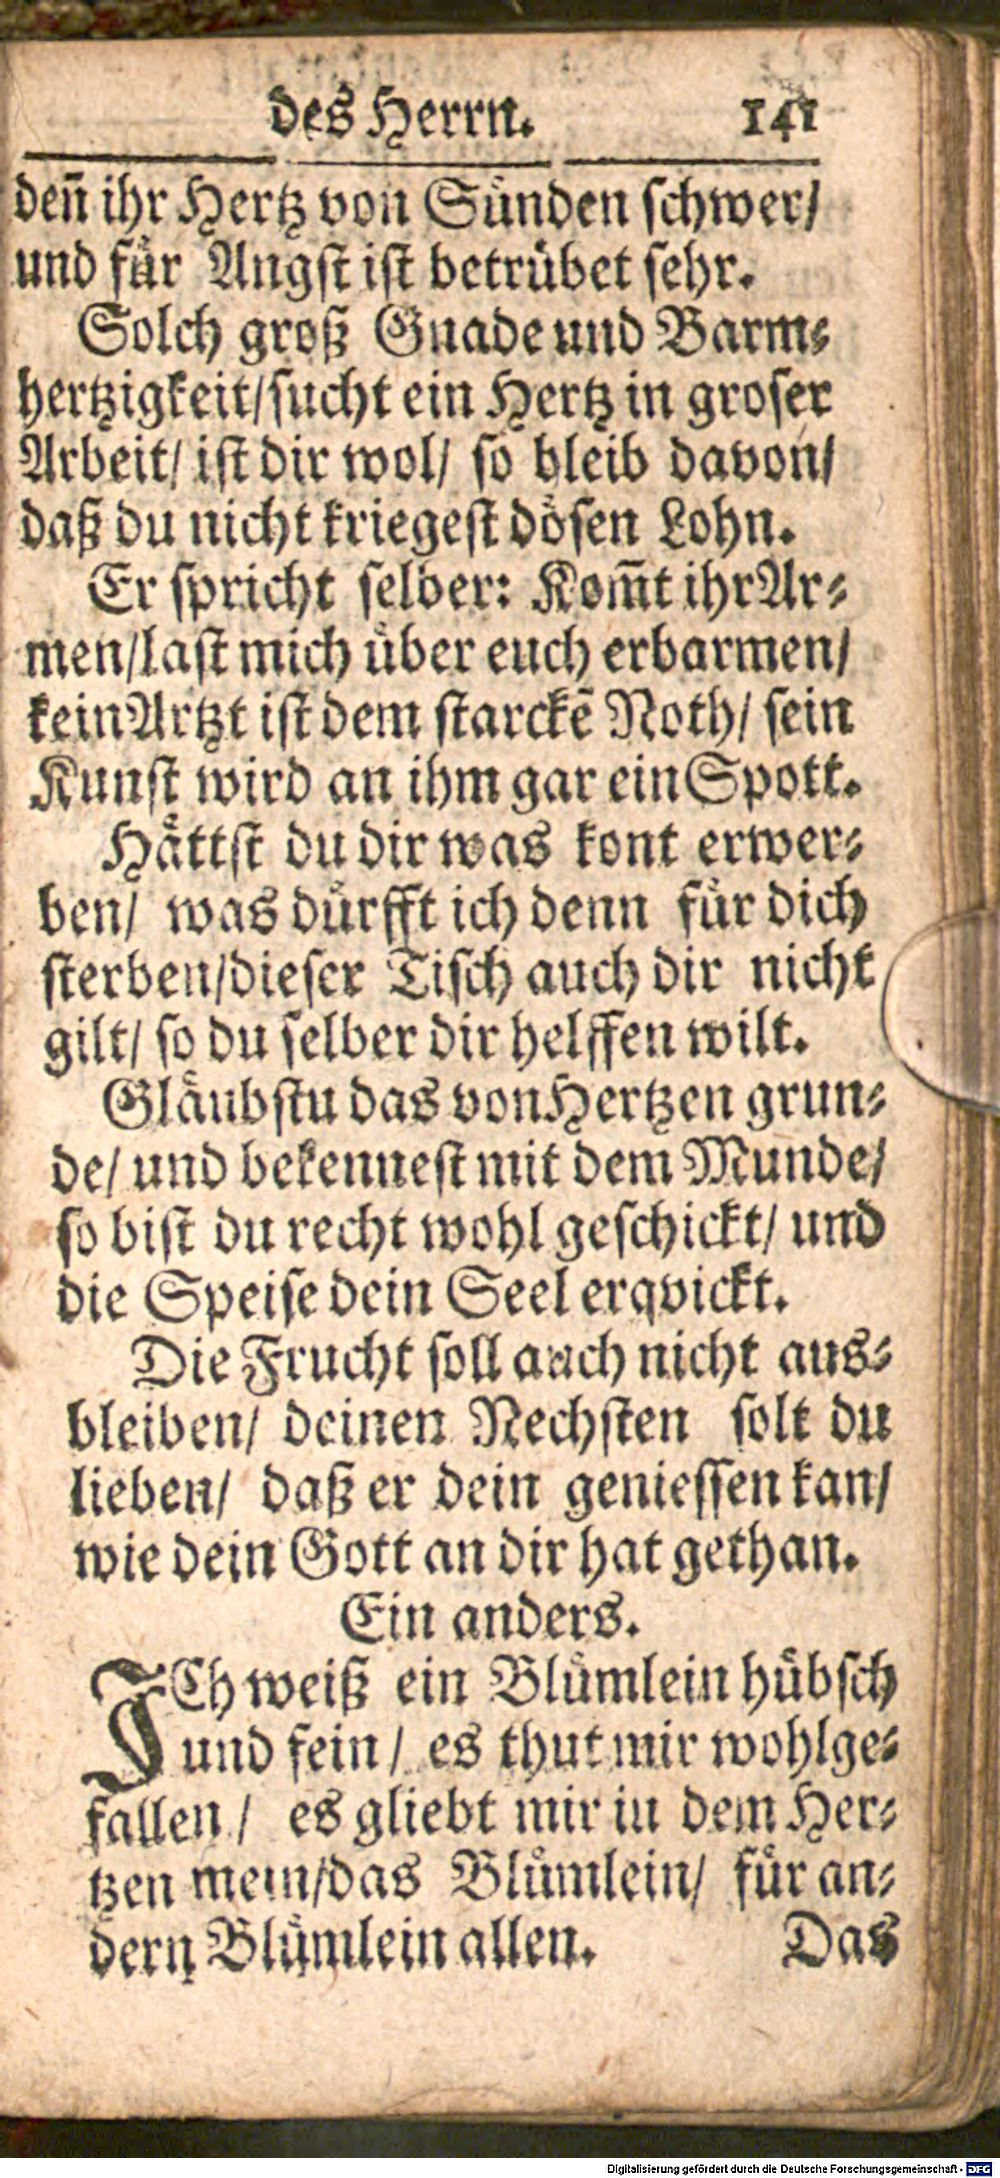 des Herrn. 141
deñ ihr Hertz von Sünden schwer/
und für Angst ist betrübet sehr.
Solch groß Gnade und Barm⸗
hertzigkeit/sucht ein Hertz in groser
Arbeit/ ist dir wol/ so bleib davon/
daß du nicht kriegest bösen Lohn.
Er spricht selber: Kom̃t ihr Ar⸗
men/last mich über euch erbarmen/
kein Artzt ist dem starckẽ Noth/ sein
Kunst wird an ihm gar ein Spott.
Hättst du dir was kont erwer⸗
ben/ was dürfft ich denn für dich
sterben/dieser Tisch auch dir nicht
gilt/ so du selber dir helffen wilt.
Gläubstu das von Hertzen grun⸗
de/ und bekennest mit dem Munde/
so bist du recht wohl geschickt/ und
die Speise dein Seel erqvickt.
Die Frucht soll auch nicht aus⸗
bleiben/ deinen Nechsten solt du
lieben/ daß er dein geniessen kan/
wie dein Gott an dir hat gethan.
Ein anders.
ICh weiß ein Blümlein hübsch
und fein/ es thut mir wohlge⸗
fallen/ es gliebt mir in dem Her⸗
tzen mein/das Blümlein/ für an⸗
dern Blümlein allen. Das
Digitalisierung gefördert durch die Deutsche Forschungsgemeinschaft - DFG